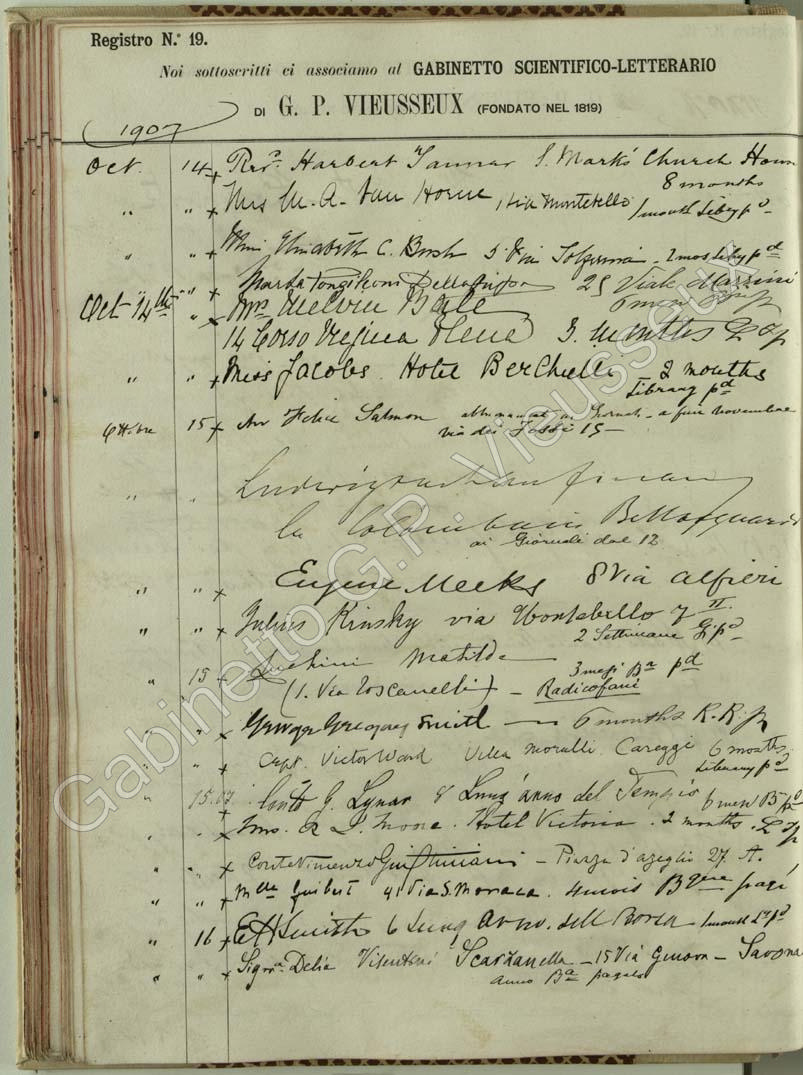 Registro N.° 19.
Noi sottoscritti ci associamo al GABINETTO SCIENTIFICO-LETTERARIO
DI G. P. VIEUSSEUX (FONDATO NEL 1819)
1907
Oct. 14 Revd. Herbert Tanner S. Mark's Church House
8 months
" " Mrs M. A. Van Horne, 1 Via Montebello
1 month Liby pd
" " Elizabeth C. Bush 5 Via Solferino - 2 mos Liby pd
" " 25 Viale Mazzini
Oct 14th " Mrs Melvin
14 Corso Regina Elena 3 Months
" " Miss Jacobs Hotel Berchielli 2 months
Library pd
Ottobre 15 Avv Felice Salmon ai Giornali - a fine novembre
via dei Fossi 15 -
" " Ludwig von
la Colombaia Bellosguardo
ai Giornali dal 12
" " Eugene Meeks 8 Via Alfieri
" " Julius Kinsky via Montebello 7 II.
2 Settimane G. pd
" 15 Luchini Matilde
3 mesi Ba pd
(1. Via Toscanelli) - Radicofani
" " George Gregory Smith - 6 months R.R. p
" " Capt. Victor Ward Villa Morelli Careggi 6 months
Library pd
" 15.07 Conte G. Lynar 8 Lung'arno del Tempio 6 mesi B pd
" " Mrs. R. D. Moore. Hotel Victoria. 2 months.
" " Conte Vincenzo Giustiniani - Piazza d'azeglio 27. A.
" " Mlle Guibert 41 Via S. Monaca. 4 mois Bgère payé
" 16 E H Smith 6 Lung Arno. della Borsa 1 month Ly pd
" " Signra. Delia Visentini Scarzanella - 15 Via Genova - Savona
anno Ba pagato
Gabinetto G.P. Vieusseux